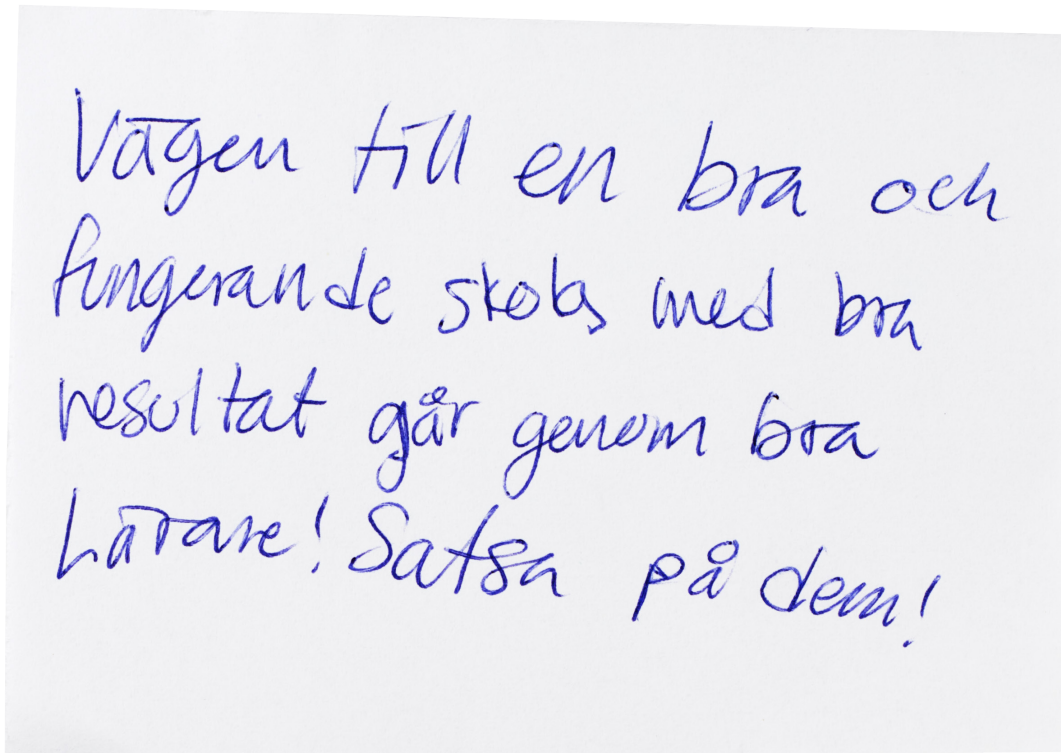 Vägen till en bra och
fungerande skola med bra
resultat går genom bra
Lärare! Satsa på dem!